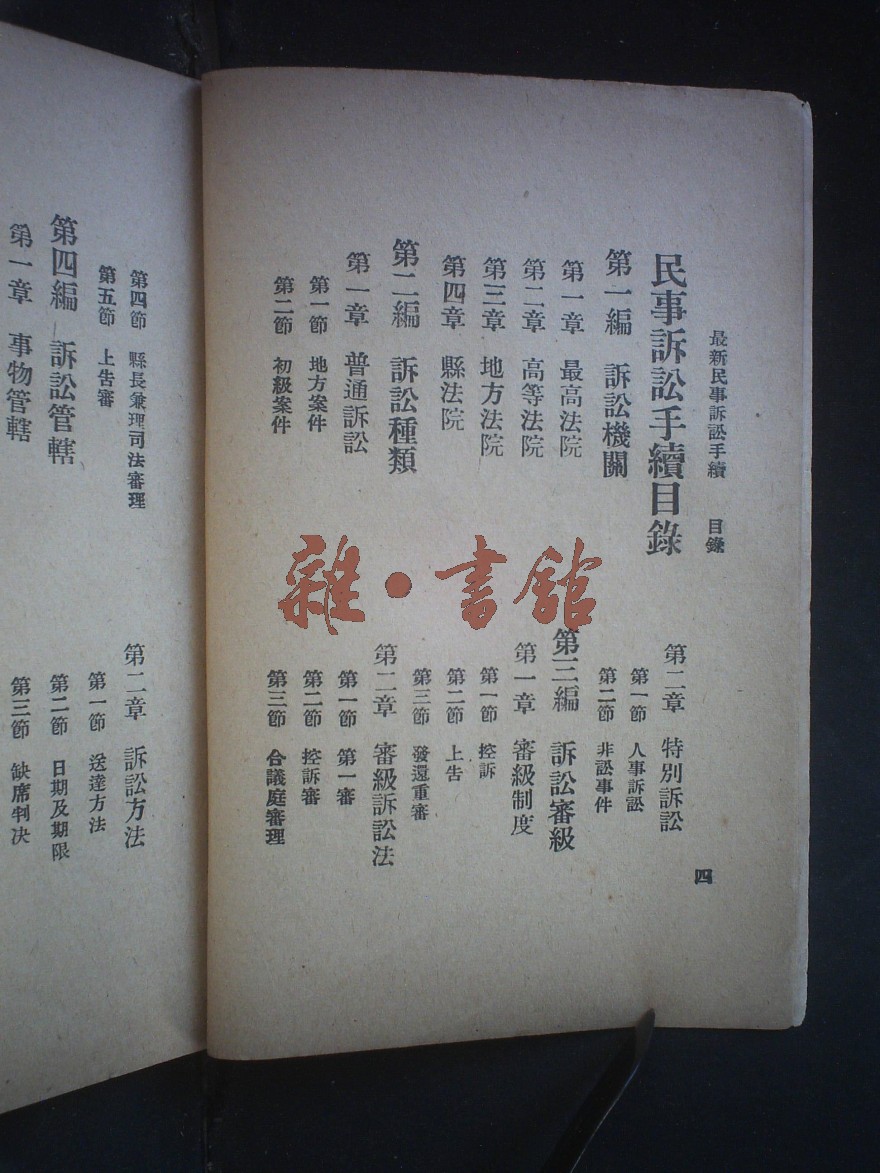 最新民事訴訟手續 目錄
四
民事訴訟手續目錄
第一編 訴訟機關
第一章 最高法院
第二章 高等法院
第三章 地方法院
第四章 縣法院
第二編 訴訟種類
第一章 普通訴訟
第一節 地方案件
第二節 初級案件
第二章 特別訴訟
第一節 人事訴訟
第二節 非訟事件
第三編 訴訟審級
第一章 審級制度
第一節 控訴
第二節 上告
第三節 發還重審
第二章 審級訴訟法
第一節 第一審
第二節 控訴審
第三節 合議庭審理
第四節 縣長兼理司法審理
第五節 上告審
第四編 訴訟管轄
第一章 事物管轄
第二章 訴訟方法
第一節 送達方法
第二節 日期及期限
第三節 缺席判決
雜·書館